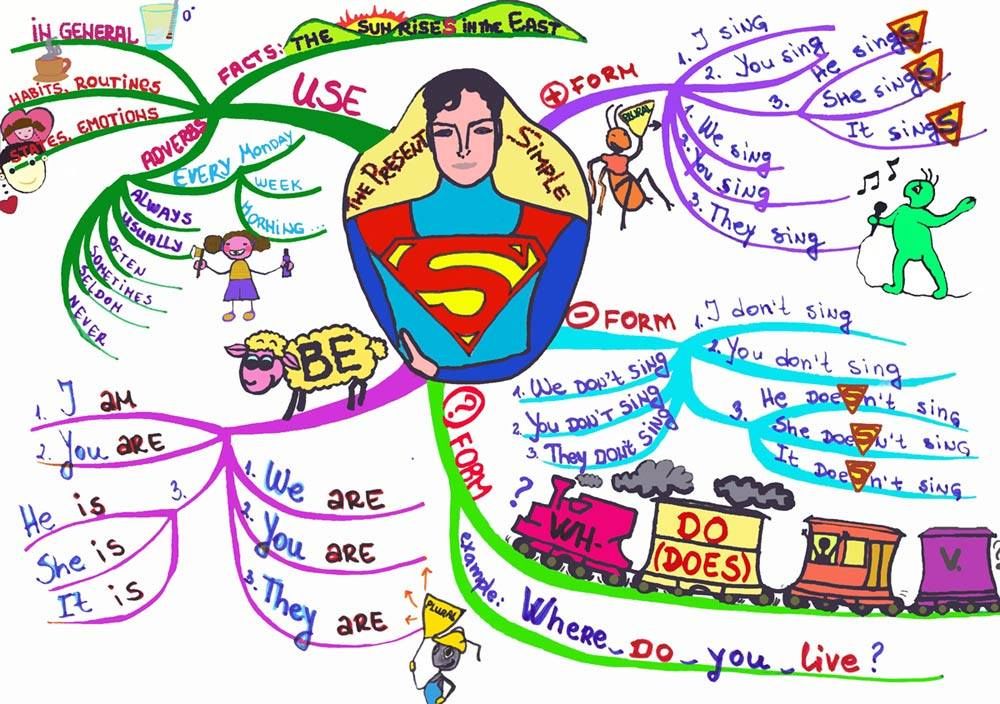 THE PRESENT SIMPLE
S
USE
IN GENERAL
HABITS, ROUTINES
STATES, EMOTIONS
FACTS: THE SUN RISES in the EAST
ADVERBS
EVERY Monday
WEEK
MORNiNG...
ALWAYS
USUALLY
OFTEN
SOMETIMES
SELDOM
NEVER
+ FORM
1. I SiNG
2. You sing
3. He singS
She singS
It singS
PLURAL
1. We sing
2. You sing
3. They sing
- FORM
1. I don't sing
2. You don't sing
3. He DoeSn't sing
She DoeSn't sing
It DoeSn't sing
1. We DON'T SiNG
2. You DON'T SiNG
3. They DON'T SiNG
BE
1. I AM
2. You ARE
3.
He is
She is
It is
1. We ARE
2. You ARE
3. They ARE
PLURAL
? FORM
?
WH-
DO
(DOES)
V.
?
example: Where_ DO _ you _ live?